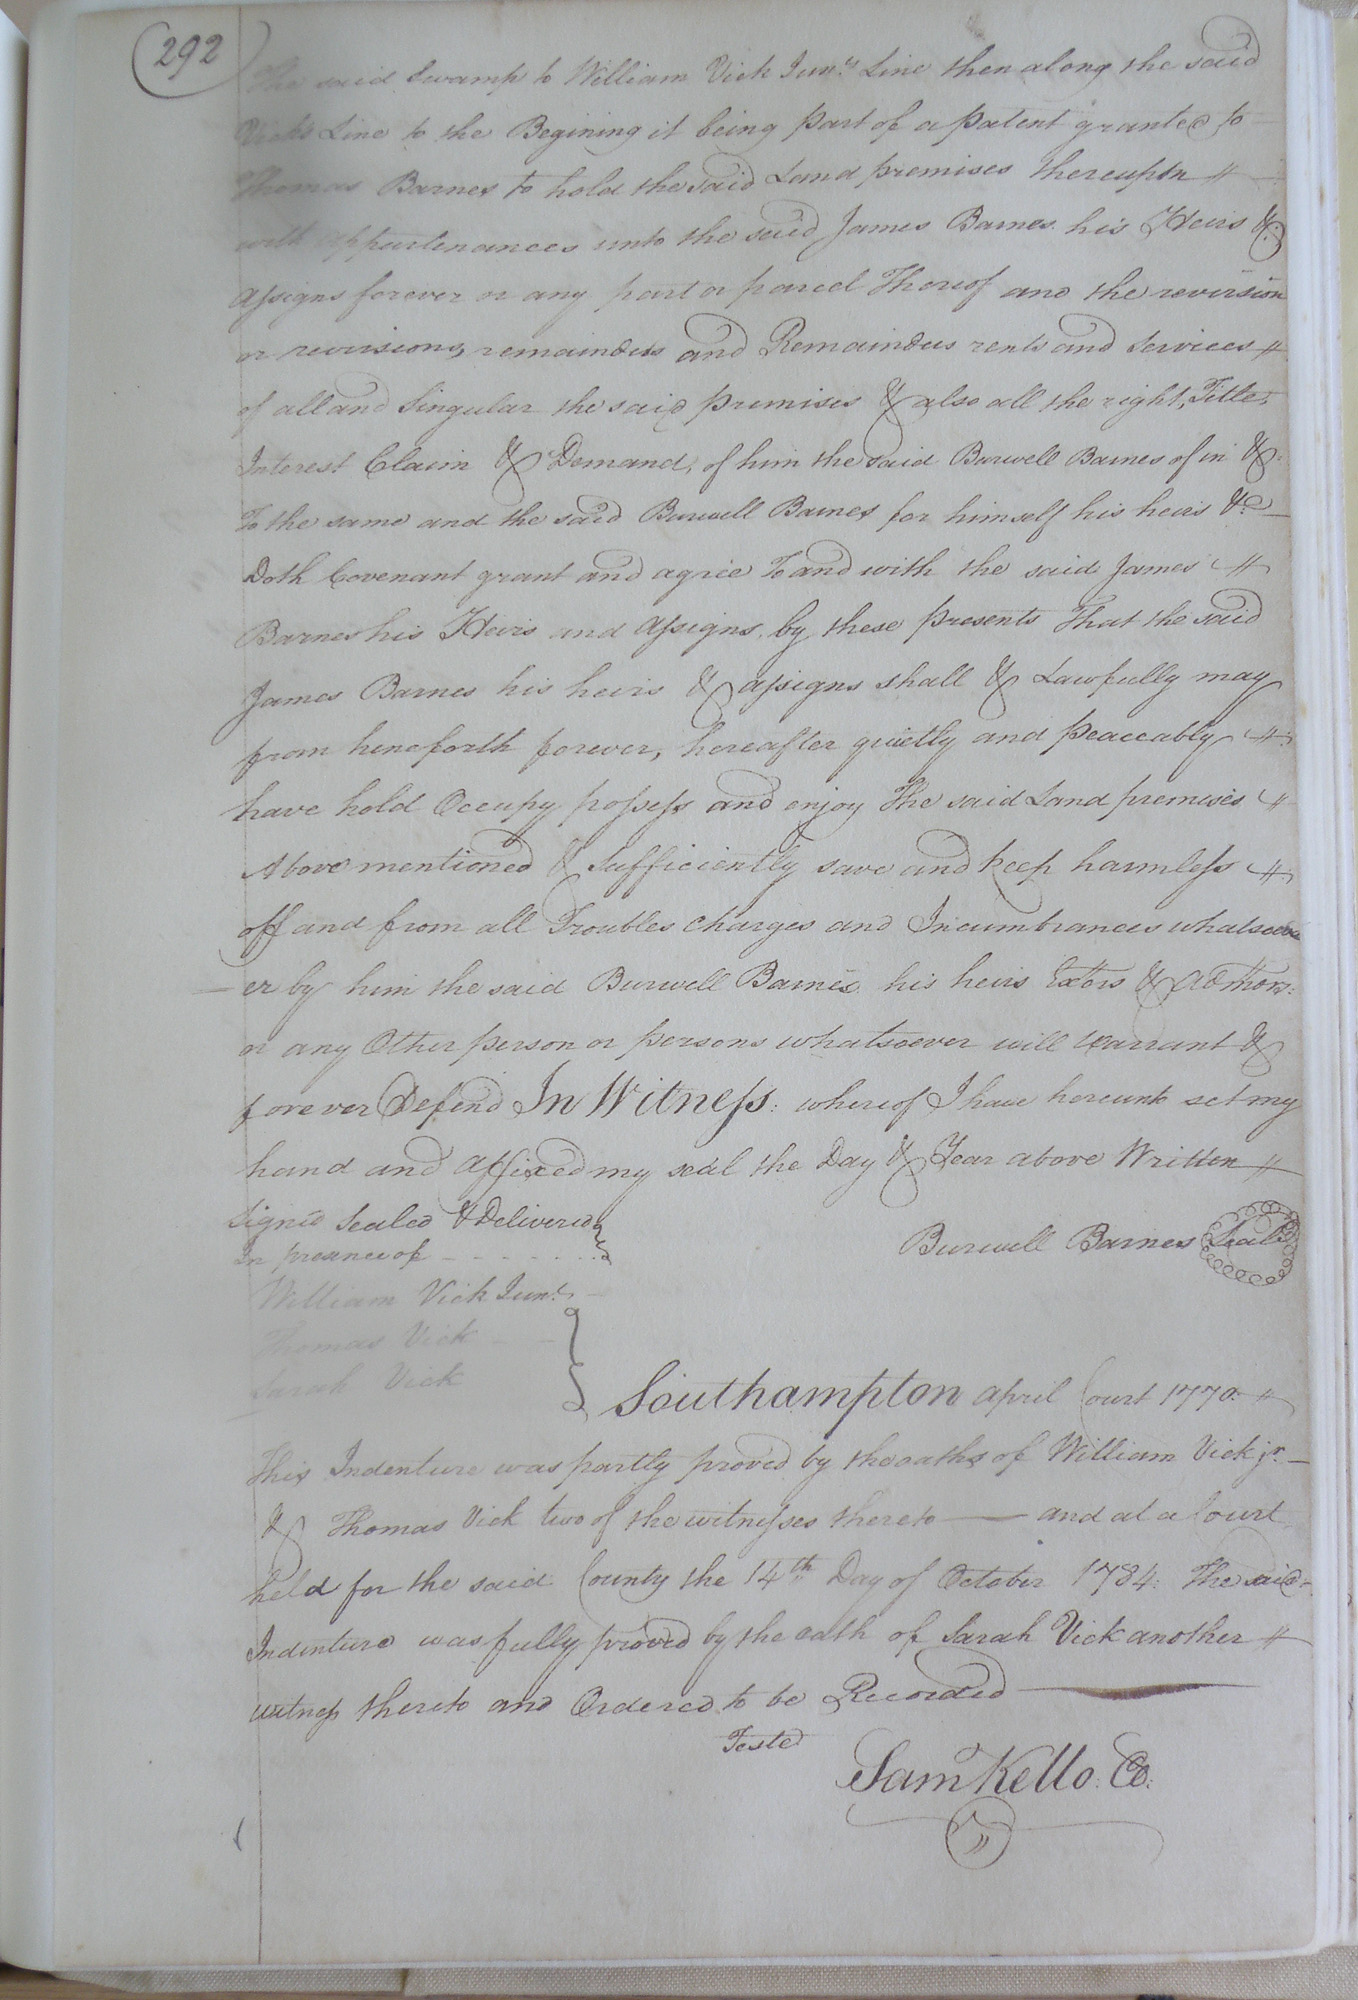 292
The said Swamp to William Vick Junr. Line then along the said
Vicks Line to the Begining it being part of a patent granted to
Thomas Barnes to hold the said Land premises thereupon
with appurtenances unto the said James Barnes his Heirs &
assigns forever or any part or parcel Thereof and the reversion
or reversions, remainders and Remainders rents and Services
of all and Singular the said premises & also all the right, Title,
Interest Claim & Demand, of him the said Burwell Barnes of in &
To the same and the said Burwell Barnes for himself his heirs &c
Doth Covenant grant and agree To and with the said James
Barnes his Heirs and assigns, by these presents That the said
James Barnes his heirs & assigns shall & Lawfully may
from henceforth forever, hereafter quietly and peaceably
have hold Occupy possess and enjoy The said Land premises
Above mentioned & sufficiently save and keep harmless
off and from all Troubles charges and Incumbrances whatsoev
er by him the said Burwell Barnes his heirs Extors & admors:
or any Other person or persons whatsoever will warrant &
forever Defend In Witness: whereof I have hereunto set my
hand and affixed my seal the Day & Year above Written
Signed Sealed & Delivered
In presance of
Burwell Barnes Seal
William Vick Junr.
Thomas Vick
Sarah Vick
Southampton april Court 1770:
This Indenture was partly proved by the oaths of William Vick jr.
& Thomas Vick two of the witnesses thereto — and at a Court
held for the said County the 14th Day of October 1784: The said
Indenture was fully proved by the oath of Sarah Vick another
witness thereto and Ordered to be Recorded
Teste
Saml Kello: Cc: